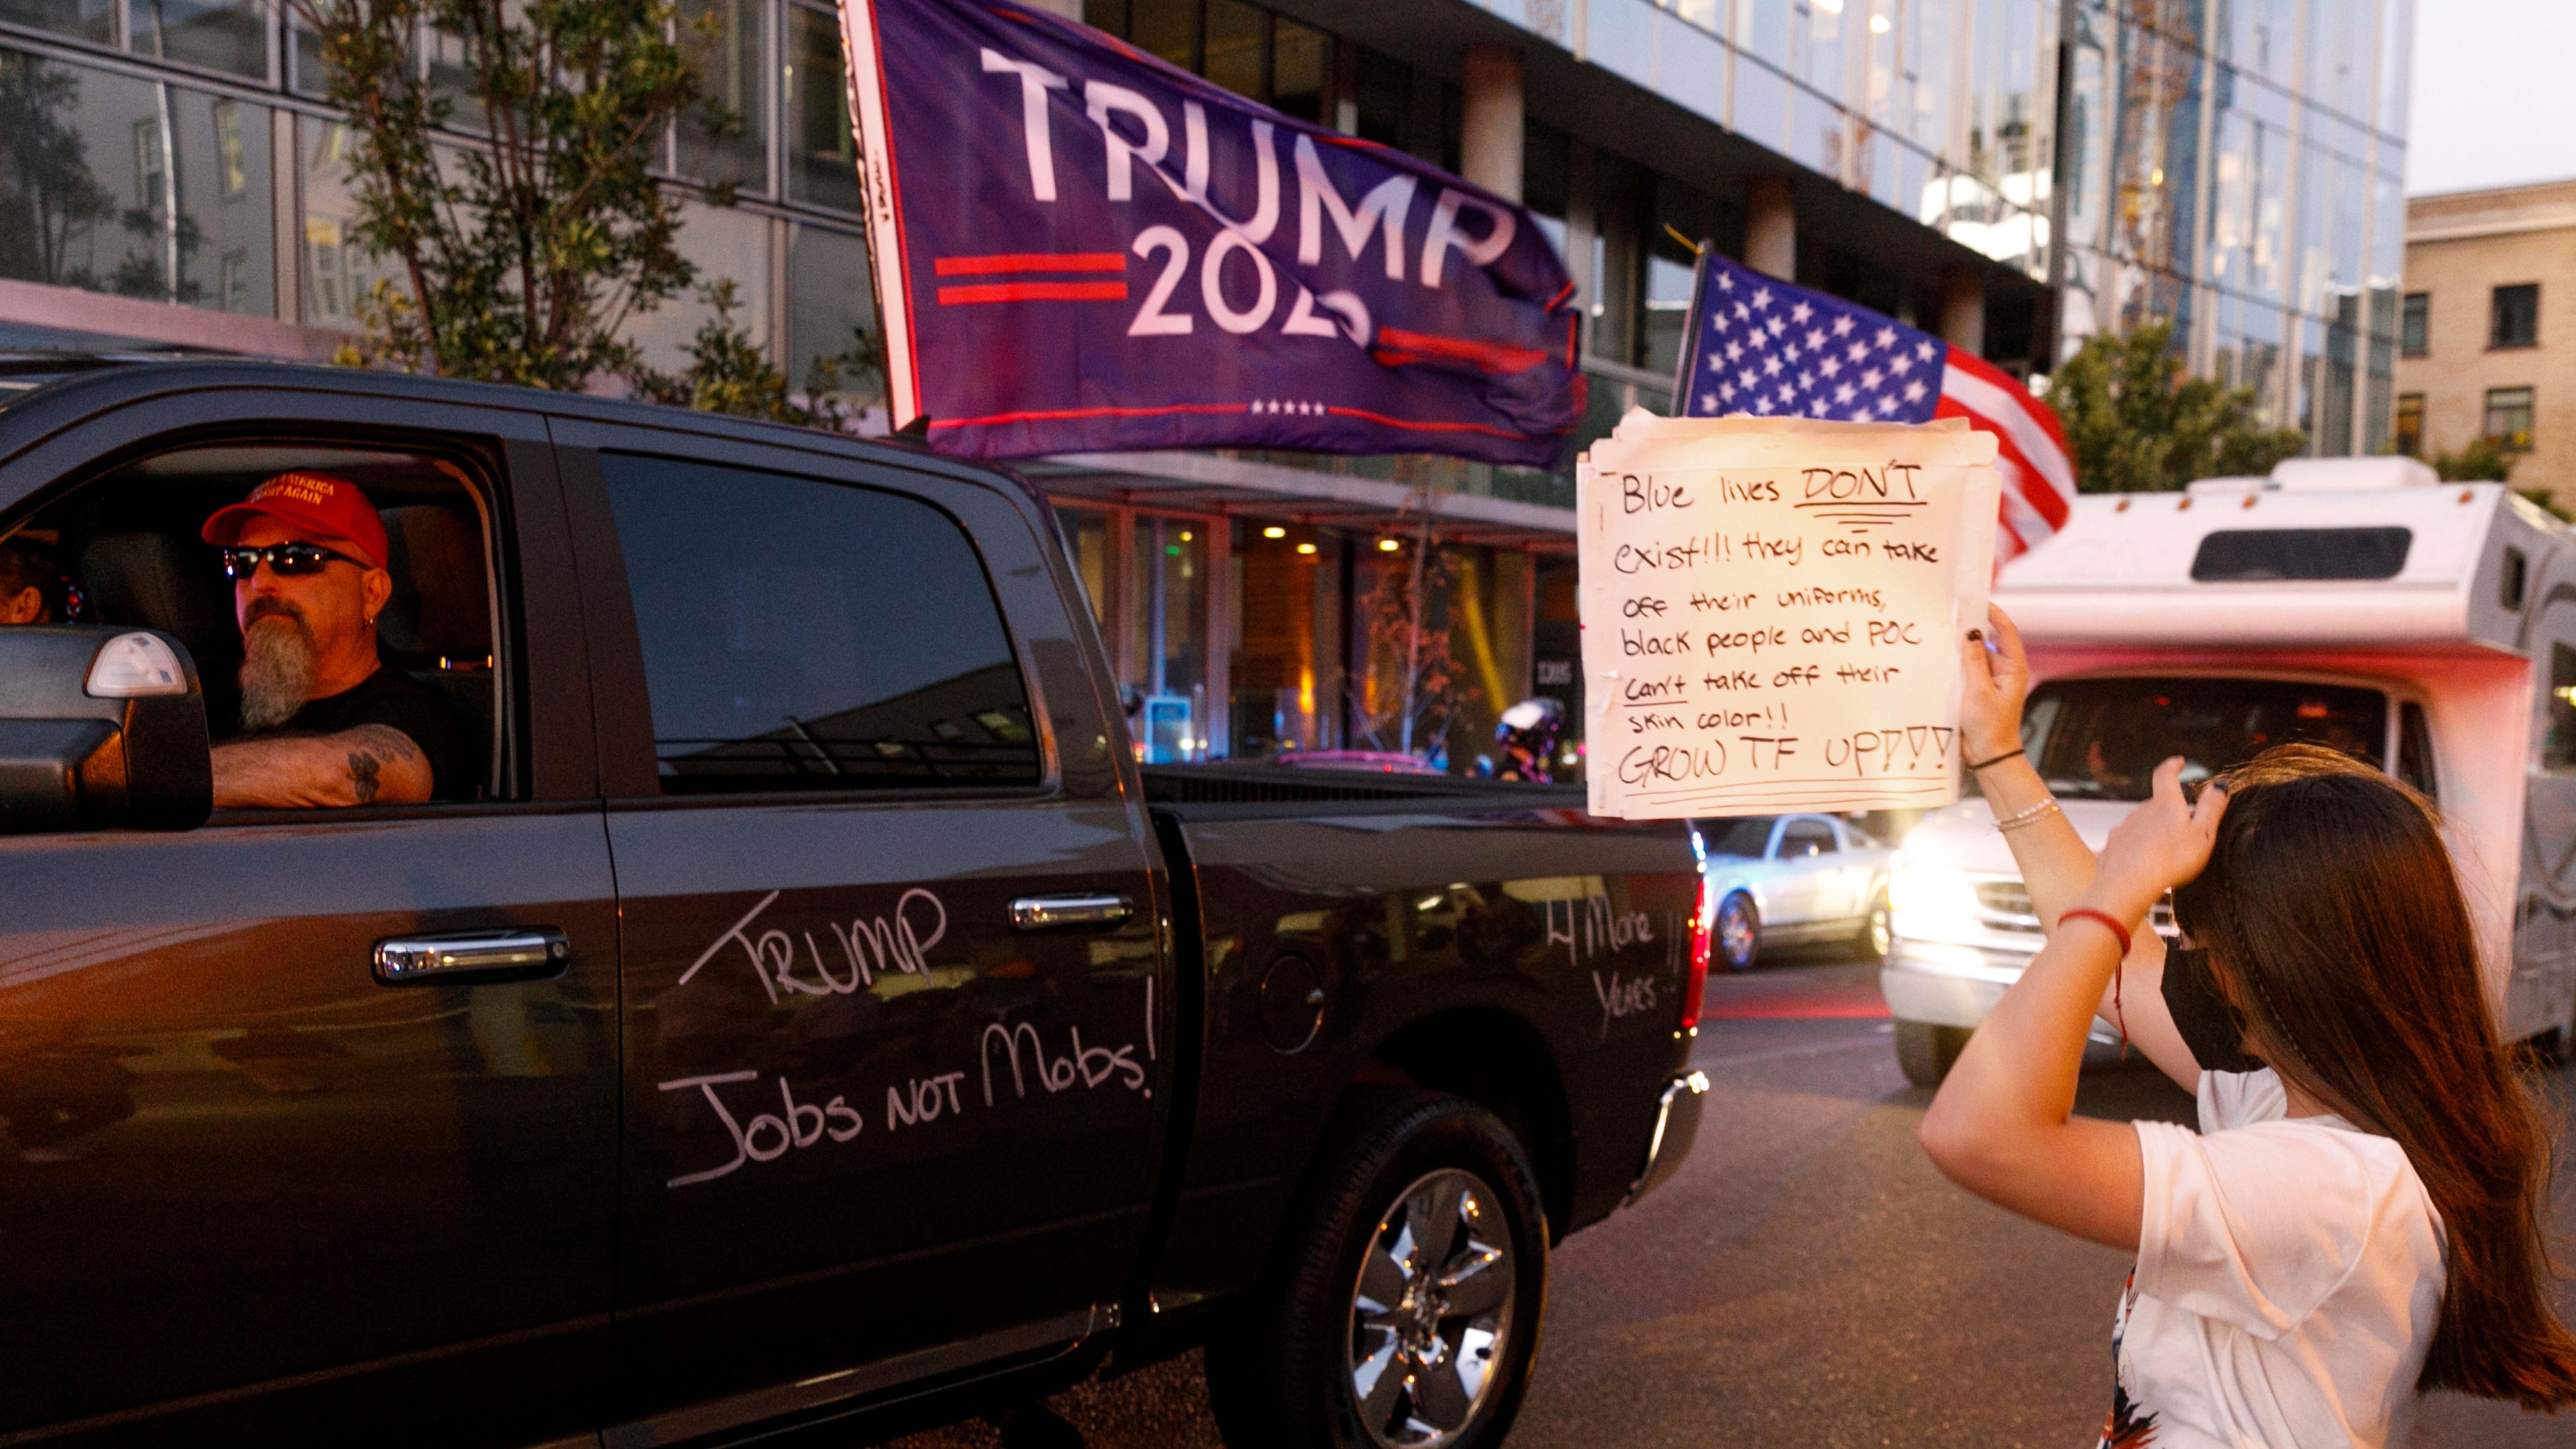 TRUMP
2020
AMERICA
AGAIN
Blue lives DON'T
exist!!! they can take
off their uniforms,
black people and POC
can't take off their
skin color!!
GROW TF UP!!!
TRUMP
Jobs NOT Mobs!
4 More
Years